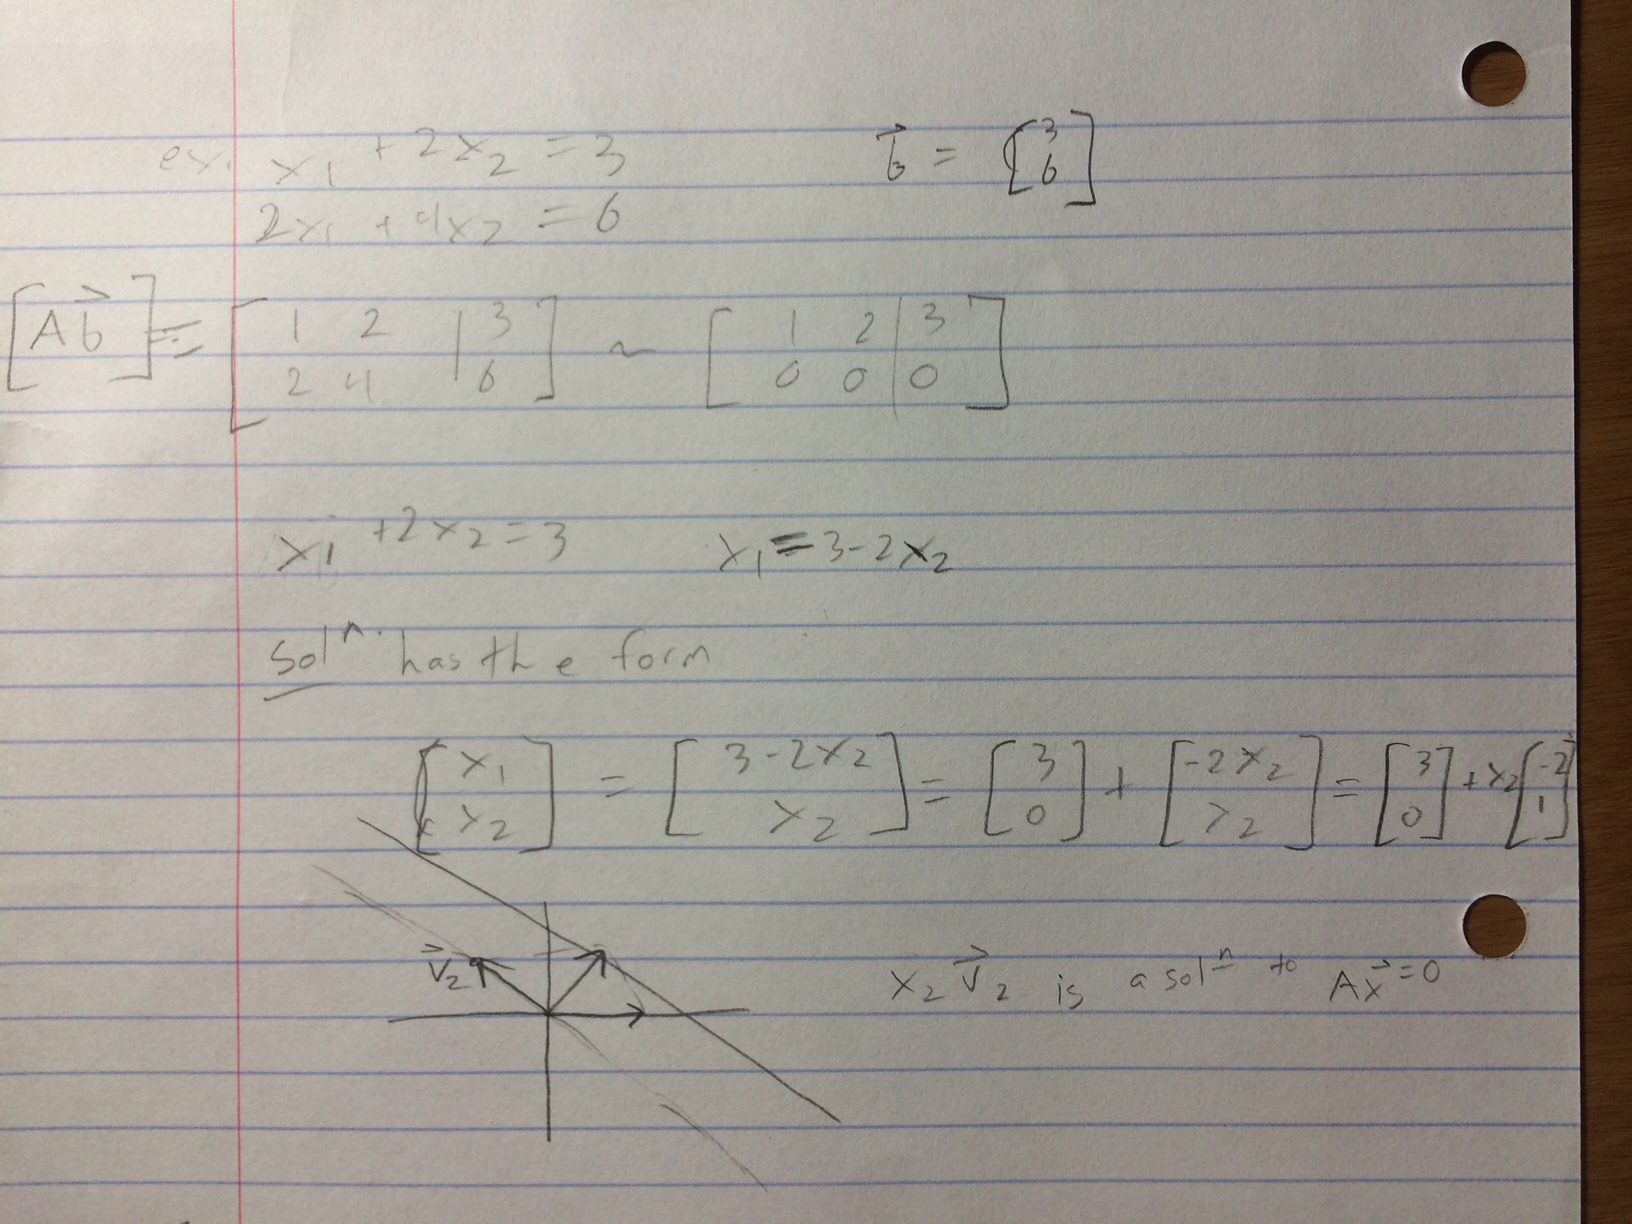 ex. x₁ + 2x₂ = 3    b⃗ = [3; 6]
2x₁ + 4x₂ = 6
[A b⃗] = [1 2 | 3; 2 4 | 6] ~ [1 2 | 3; 0 0 | 0]
x₁ + 2x₂ = 3    x₁ = 3 - 2x₂
Solⁿ. has the form
[x₁; x₂] = [3 - 2x₂; x₂] = [3; 0] + [-2x₂; x₂] = [3; 0] + x₂[-2; 1]
v⃗₂
x₂ v⃗₂ is a solⁿ to Ax⃗ = 0